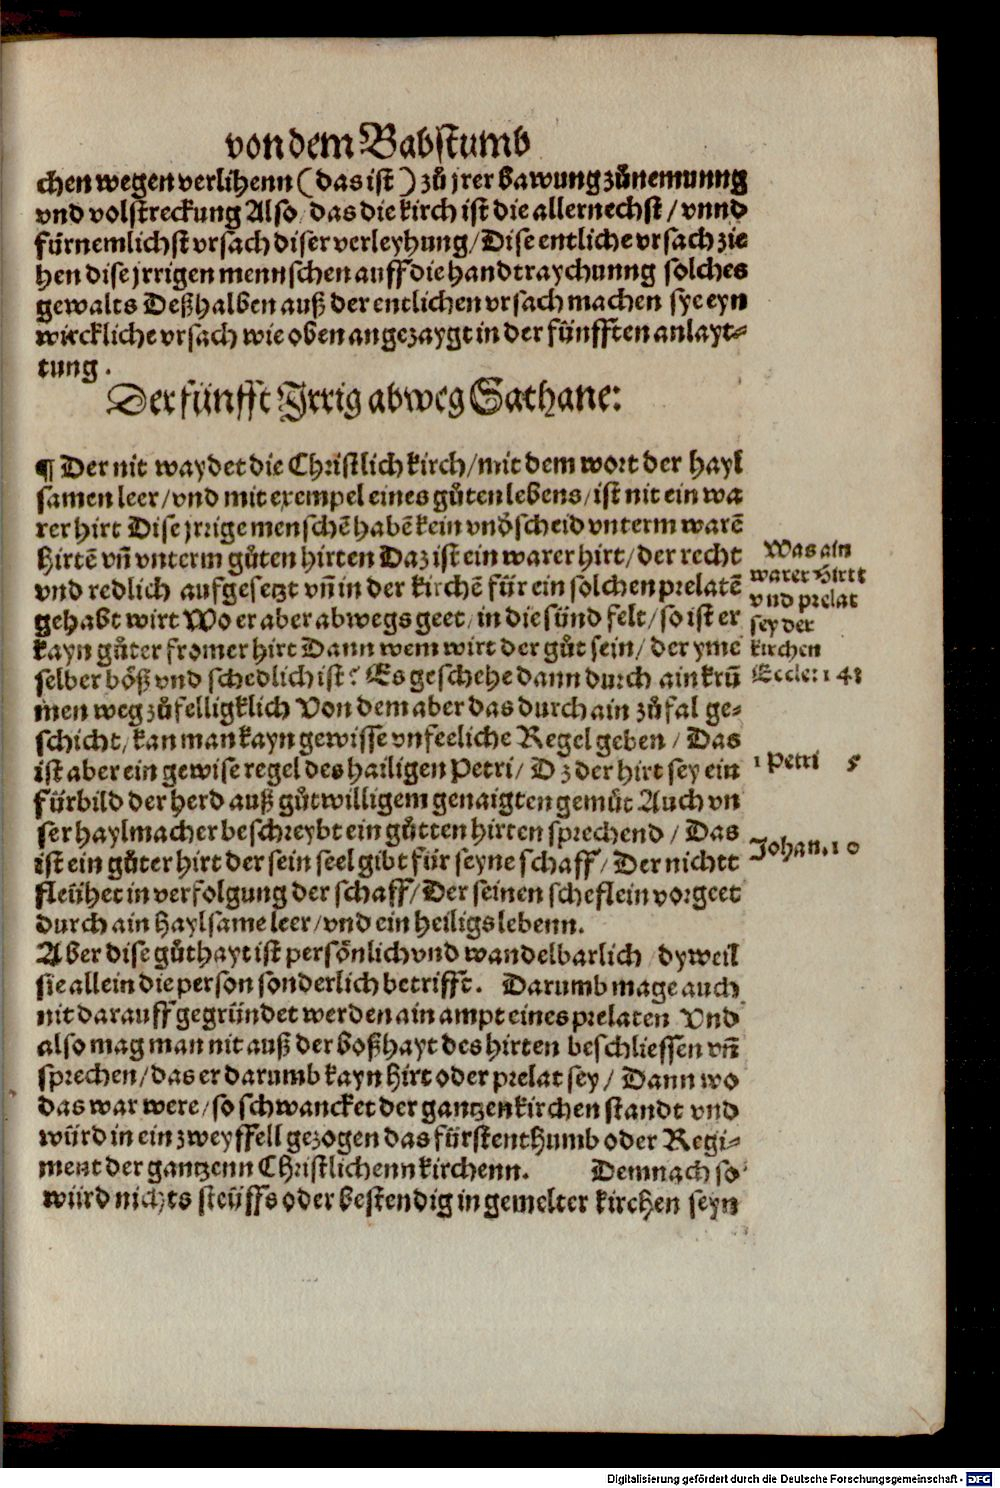 von dem Babstumb
chen wegen verlihenn (das ist) zů jrer bawung zůnemunng
vnd volstreckung Also das die kirch ist die allernechst / vnnd
fürnemlichst vrsach diser verleyhung / Dise entliche vrsach zie
hen dise jrrigen mennschen auff die handtraychunng solches
gewalts Deßhalben auß der entlichen vrsach machen sye eyn
wirckliche vrsach wie oben angezaygt in der fünfften anlayt-
tung.
Der fünfft Irrig abweg Sathane:
¶ Der nit waydet die Christlich kirch / mit dem wort der hayl
samen leer / vnd mit exempel eines gůten lebens / ist nit ein wa
rer hirt Dise jrrige menschē habē kein vnd̕scheid vnterm warē
Hirtē vñ vnterm gůten hirten Daz ist ein warer hirt / der recht
vnd redlich aufgesetzt vñ in der kirchē für ein solchen prelatē
gehabt wirt Wo er aber abwegs geet / in die sünd felt / so ist er
kayn gůter fromer hirt Dann wem wirt der gůt sein / der yme
selber böß vnd schedlich ist? Es geschehe dann durch ain krū
men weg zůfelligklich Von dem aber das durch ain zůfal ge-
schicht / kan man kayn gewisse vnfeeliche Regel geben / Das
ist aber ein gewise regel des hailigen Petri / Dz der hirt sey ein
fürbild der herd auß gůtwilligem genaigten gemüt Auch vn
ser haylmacher beschreybt ein gůtten hirten sprechend / Das
ist ein gůter hirt der sein seel gibt für seyne schaff / Der nichtt
fleühet in verfolgung der schaff / Der seinen scheflein vorgeet
durch ain Haylsame leer / vnd ein heiligs lebenn.
Aber dise gůthayt ist persönlich vnd wandelbarlich / dyweil
sie allein die person sonderlich betrifft. Darumb mage auch
nit darauff gegründet werden ain ampt eines prelaten Vnd
also mag man nit auß der boßhayt des hirten beschliessen vñ
sprechen / das er darumb kayn Hirt oder prelat sey / Dann wo
das war were / so schwancket der gantzen kirchen standt vnd
würd in ein zweyffell gezogen das fürstenthumb oder Regi-
ment der gantzenn Christlichenn kirchenn. Demnach so
würd nichts steüffs oder bestendig in gemelter kirchen seyn
Was ain
warer Hirtt
vnd prelat
sey der
kirchen
Eccle: 14
1 Petri 5
Johan. 10
Digitalisierung gefördert durch die Deutsche Forschungsgemeinschaft - DFG